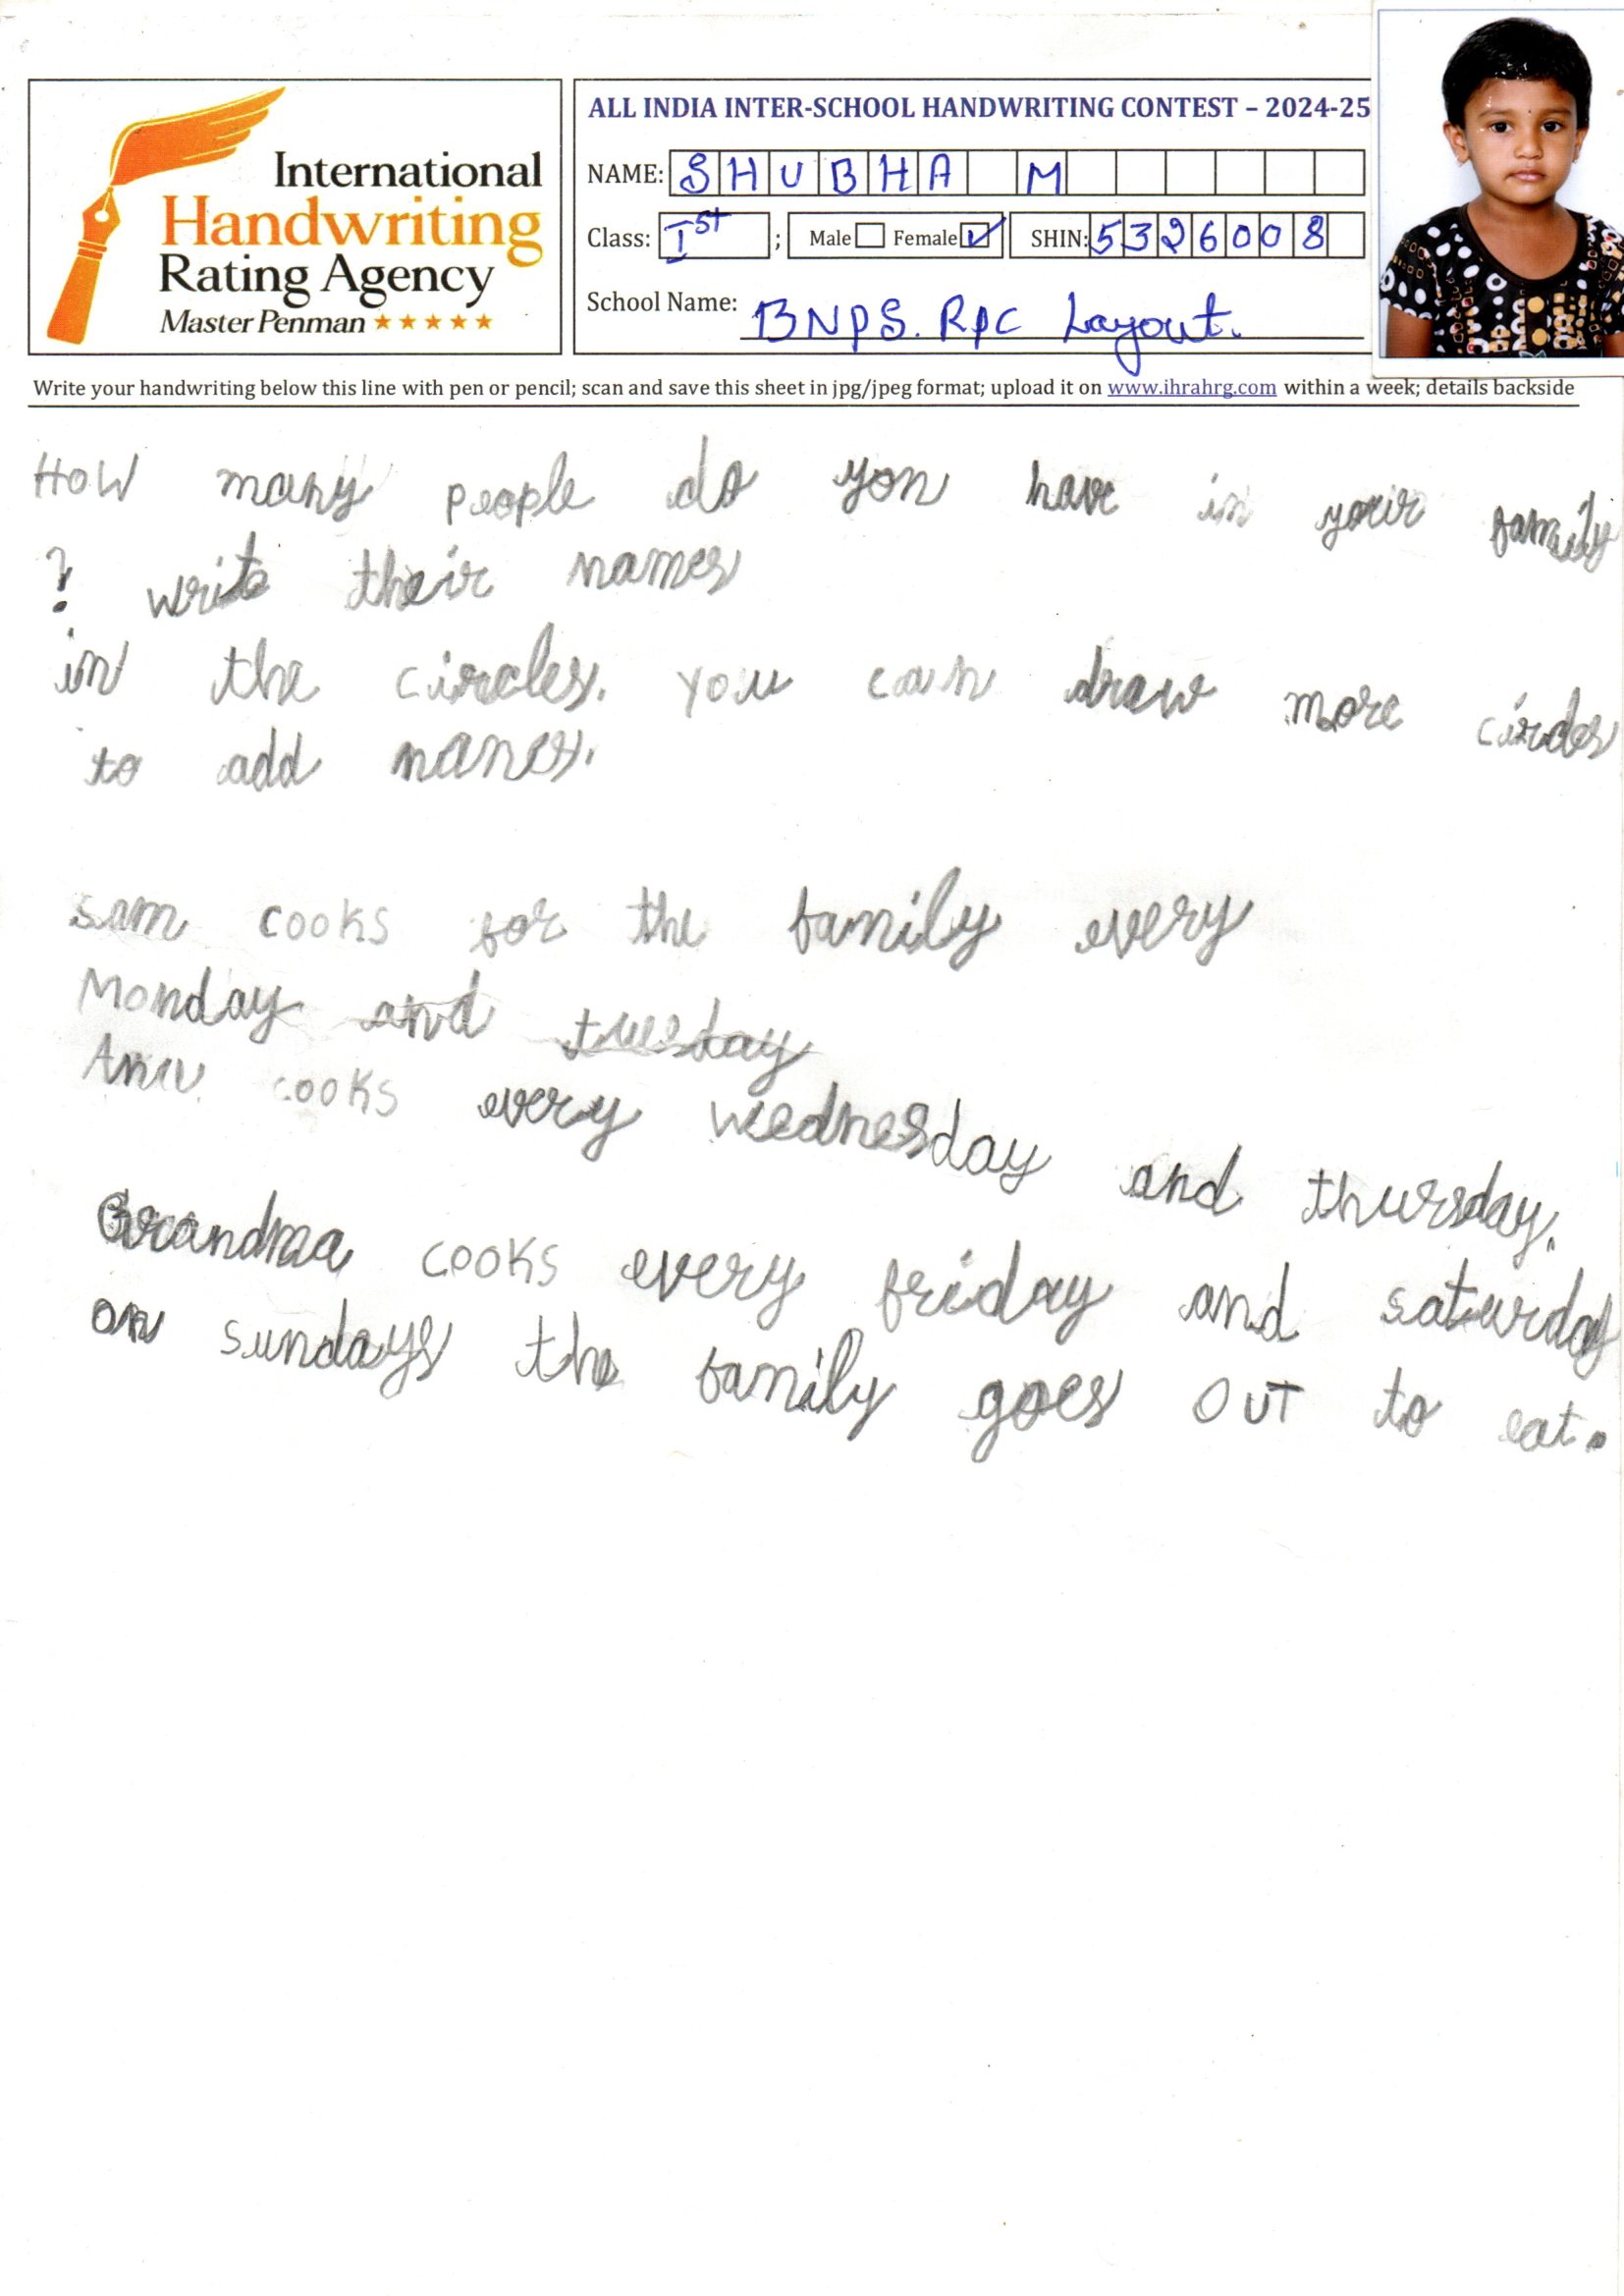 International
Handwriting
Rating Agency
Master Penman
ALL INDIA INTER-SCHOOL HANDWRITING CONTEST – 2024-25
NAME: SHUBHA M
Class: Ist ; Male Female SHIN: 5326008
School Name: BNPS. RPC Layout.
Write your handwriting below this line with pen or pencil; scan and save this sheet in jpg/jpeg format; upload it on www.ihrahrg.com within a week; details backside
How many people do yon have in your family
? write their names
in the circles. you can draw more circles
to add nanes.
sam cooks for the family every
Monday and tuesday
Anu cooks every wednesday and thursday.
Grandma cooks every friday and saturday
on sundays the family goes OUT to eat.